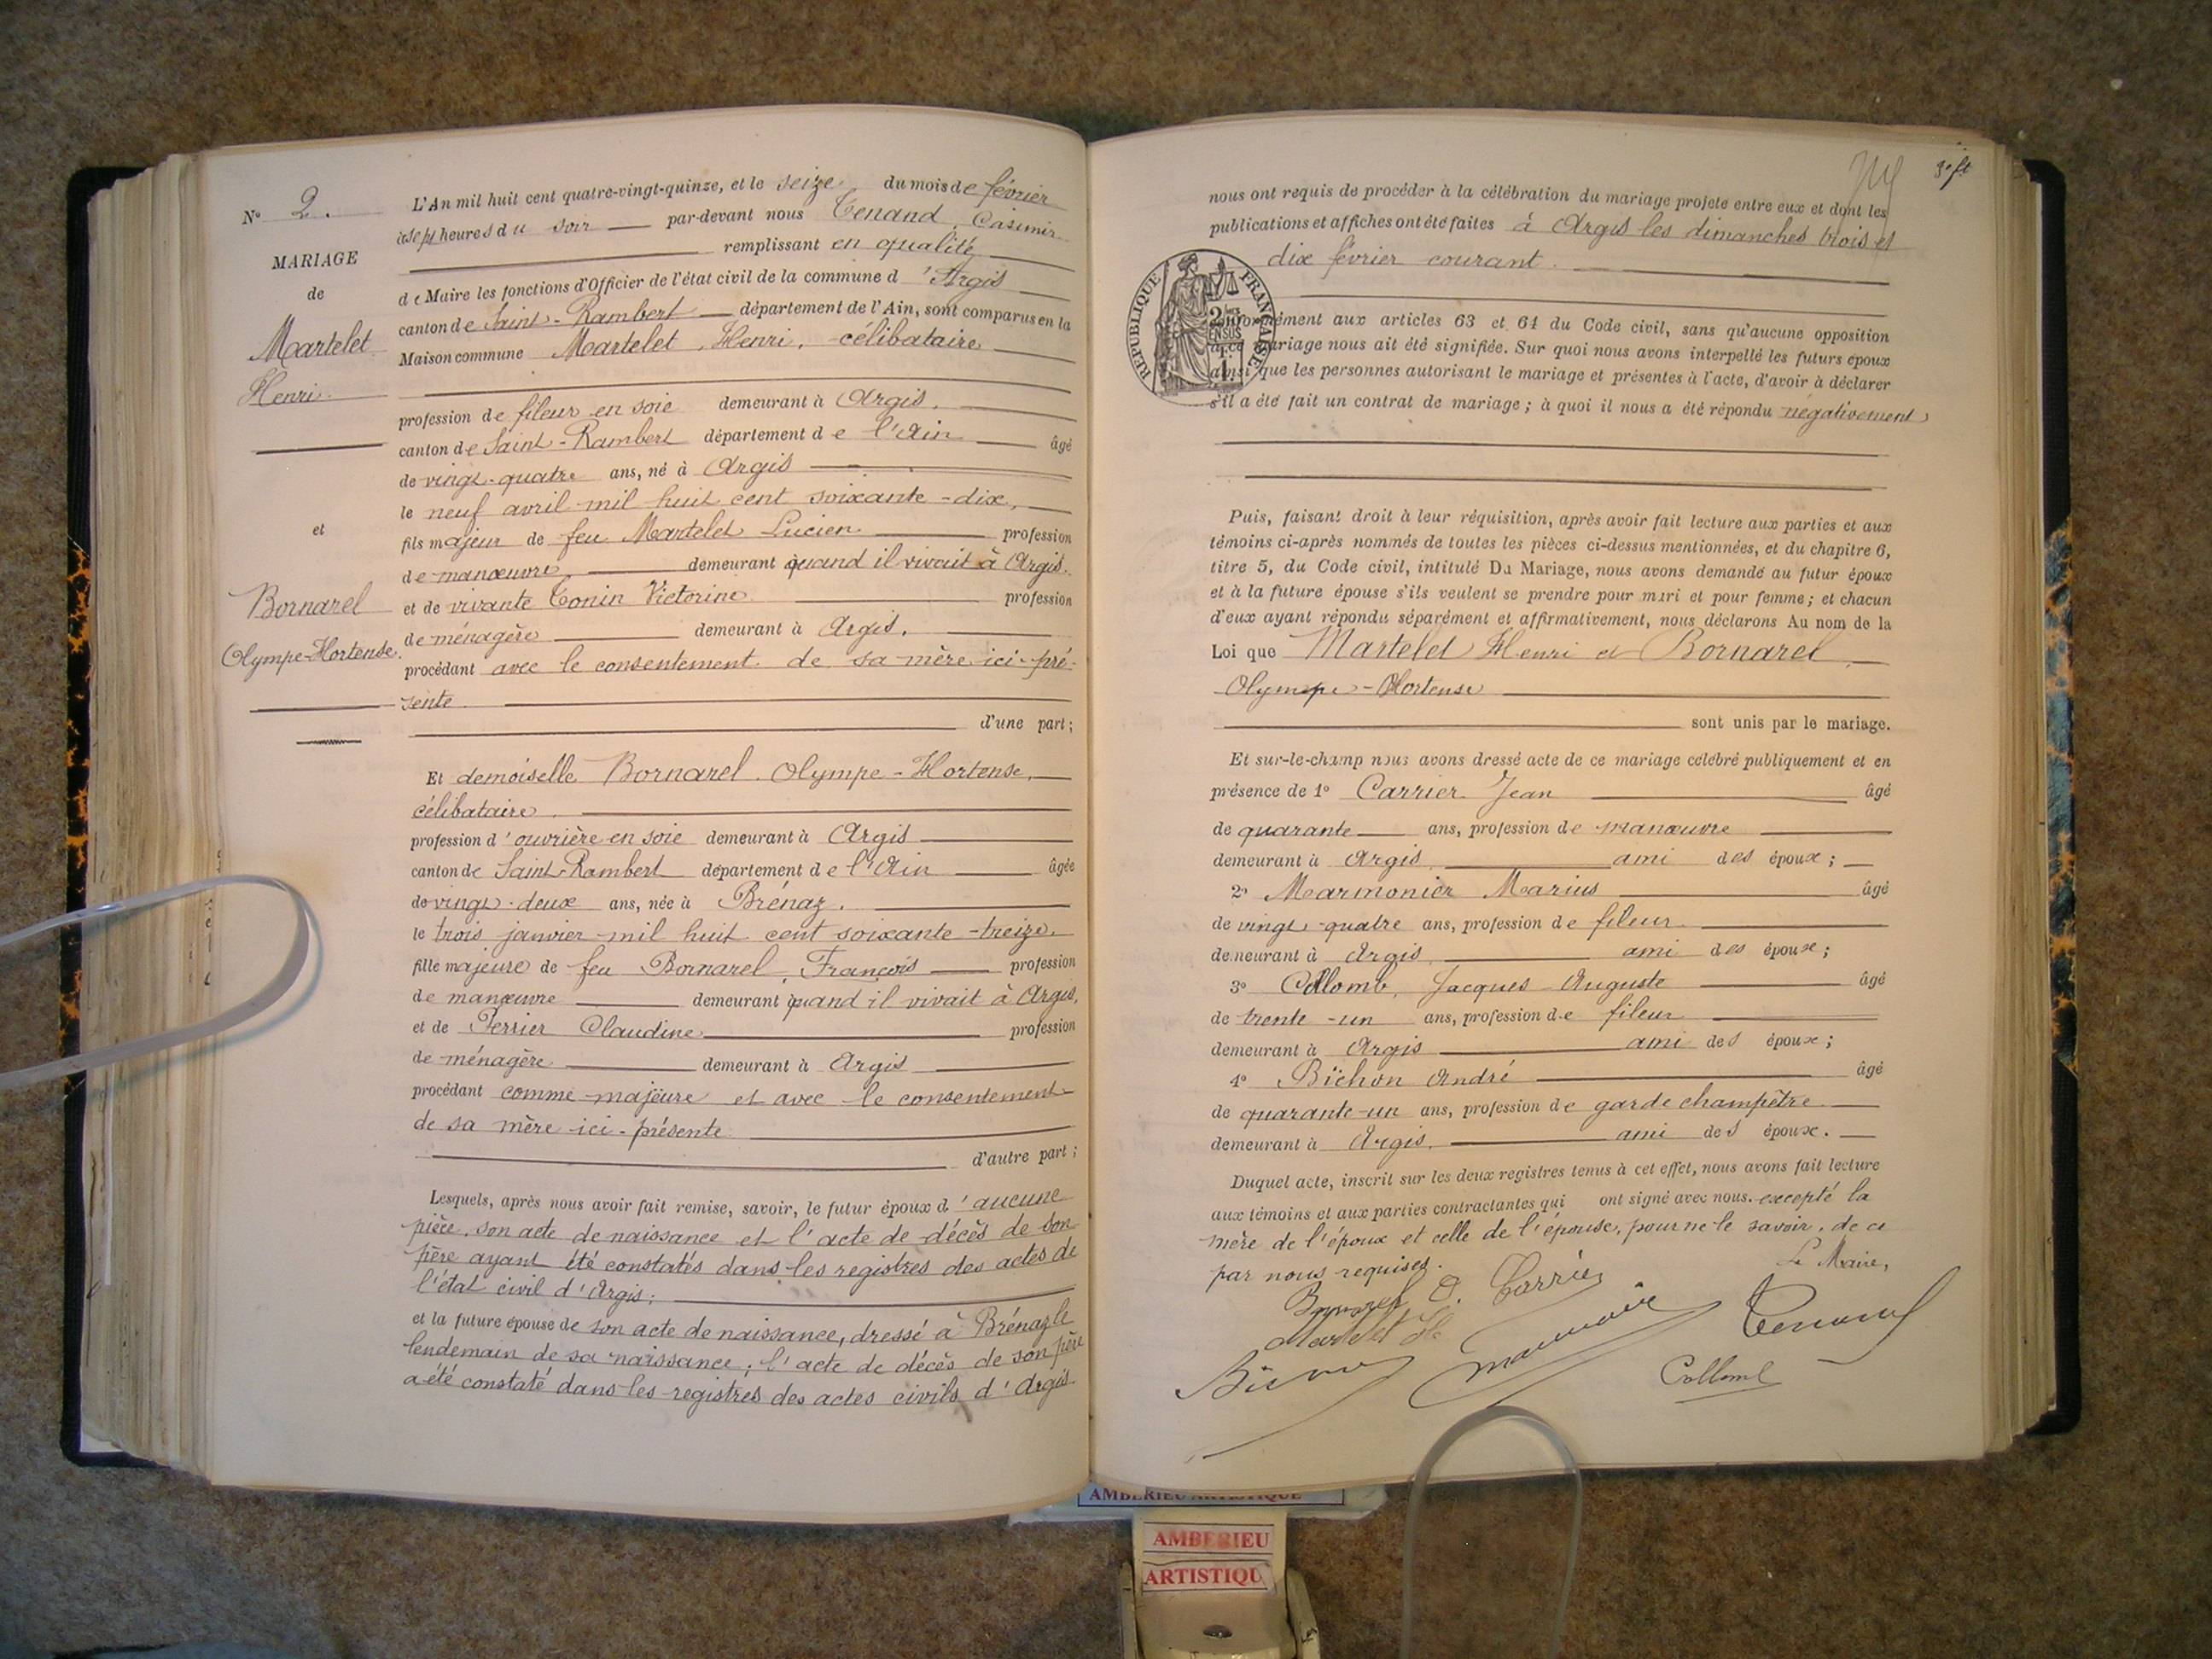 N° 2.
MARIAGE
de
Martelet
Henri
et
Bornarel
Olympe-Hortense.
L'An mil huit cent quatre-vingt-quinze, et le seize du mois de février
à sept heures du soir par-devant nous Tenand, Casimir
remplissant en qualité
de Maire les fonctions d'Officier de l'état civil de la commune d'Argis
canton de Saint-Rambert département de l'Ain, sont comparus en la
Maison commune Martelet, Henri, célibataire
profession de fileur en soie demeurant à Argis,
canton de Saint-Rambert département de l'Ain âgé
de vingt-quatre ans, né à Argis
le neuf avril mil huit cent soixante-dix,
fils majeur de feu Martelet Lucien profession
de manœuvre demeurant quand il vivait à Argis.
et de vivante Tonin Victorine profession
de ménagère demeurant à Argis.
procédant avec le consentement de sa mère ici pré-
sente
d'une part;
Et demoiselle Bornarel Olympe-Hortense,
célibataire
profession d'ouvrière en soie demeurant à Argis
canton de Saint-Rambert département de l'Ain âgée
de vingt-deux ans, née à Brénaz.
le trois janvier mil huit cent soixante-treize.
fille majeure de feu Bornarel, François profession
de manœuvre demeurant quand il vivait à Argis,
et de Perrier Claudine profession
de ménagère demeurant à Argis
procédant comme majeure et avec le consentement
de sa mère ici-présente
d'autre part;
Lesquels, après nous avoir fait remise, savoir, le futur époux d'aucune
pièce, son acte de naissance et l'acte de décès de son
père ayant été constatés dans les registres des actes de
l'état civil d'Argis;
et la future épouse de son acte de naissance, dressé à Brénaz le
lendemain de sa naissance; l'acte de décès de son père
a été constaté dans les registres des actes civils d'Argis
nous ont requis de procéder à la célébration du mariage projeté entre eux et dont les
publications et affiches ont été faites à Argis les dimanches trois et
dix février courant.
RÉPUBLIQUE FRANÇAISE
Conformément aux articles 63 et 64 du Code civil, sans qu'aucune opposition
à ce mariage nous ait été signifiée. Sur quoi nous avons interpellé les futurs époux
ainsi que les personnes autorisant le mariage et présentes à l'acte, d'avoir à déclarer
s'il a été fait un contrat de mariage; à quoi il nous a été répondu négativement
Puis, faisant droit à leur réquisition, après avoir fait lecture aux parties et aux
témoins ci-après nommés de toutes les pièces ci-dessus mentionnées, et du chapitre 6,
titre 5, du Code civil, intitulé Du Mariage, nous avons demandé au futur époux
et à la future épouse s'ils veulent se prendre pour mari et pour femme; et chacun
d'eux ayant répondu séparément et affirmativement, nous déclarons Au nom de la
Loi que Martelet Henri et Bornarel
Olympe-Hortense
sont unis par le mariage.
Et sur-le-champ nous avons dressé acte de ce mariage célébré publiquement et en
présence de 1° Carrier Jean âgé
de quarante ans, profession de manœuvre
demeurant à Argis ami des époux;
2° Marmonier Marius âgé
de vingt-quatre ans, profession de fileur
demeurant à Argis ami des époux;
3° Collomb, Jacques Auguste âgé
de trente-un ans, profession de fileur
demeurant à Argis ami des époux;
4° Bichon André âgé
de quarante-un ans, profession de garde champêtre
demeurant à Argis. ami des époux.
Duquel acte, inscrit sur les deux registres tenus à cet effet, nous avons fait lecture
aux témoins et aux parties contractantes qui ont signé avec nous. excepté la
mère de l'époux et celle de l'épouse, pour ne le savoir, de ce
par nous requises.
Le Maire,
Bornarel O. Carrier
Martelet H.
Tenand
Collomb
AMBERIEU ARTISTIQUE
AMBERIEU
ARTISTIQU